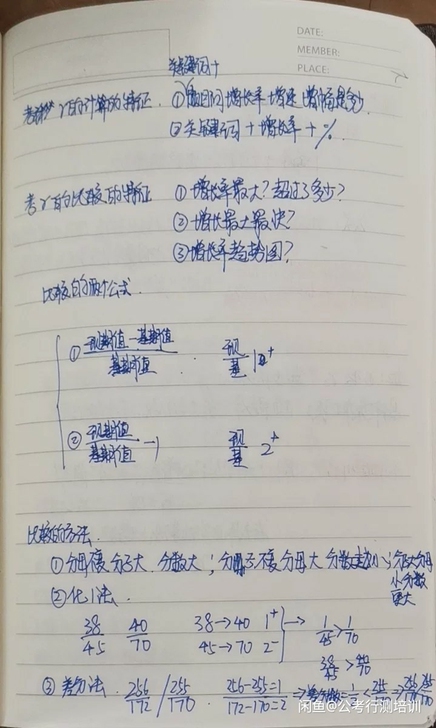 DATE:
MEMBER:
PLACE:
关键词+
考r的计算的特征. ①直接问增长率 增速 增幅是多少
②关键词+增长率+%.
考r的比较的特征 ①增长率最大?超过了多少?
②增长最大最快?
③增长率趋势图?
比较的两个公式.
①现期值-基期值/基期值 现/基 1^+
②现期值/基期值-1 现/基 2^+
比较的方法.
①分母不变 分子大 分数大;分子不变 分母大 分数越小;分子大分母小分数更大
②化1法.
38/45 40/70 38→40 1^+ → 1/45>1/70
45→70 2^-
38/45>40/70
③差分法. 256/172 / 255/170. 256-255=1 172-170=2
闲鱼@公考行测培训